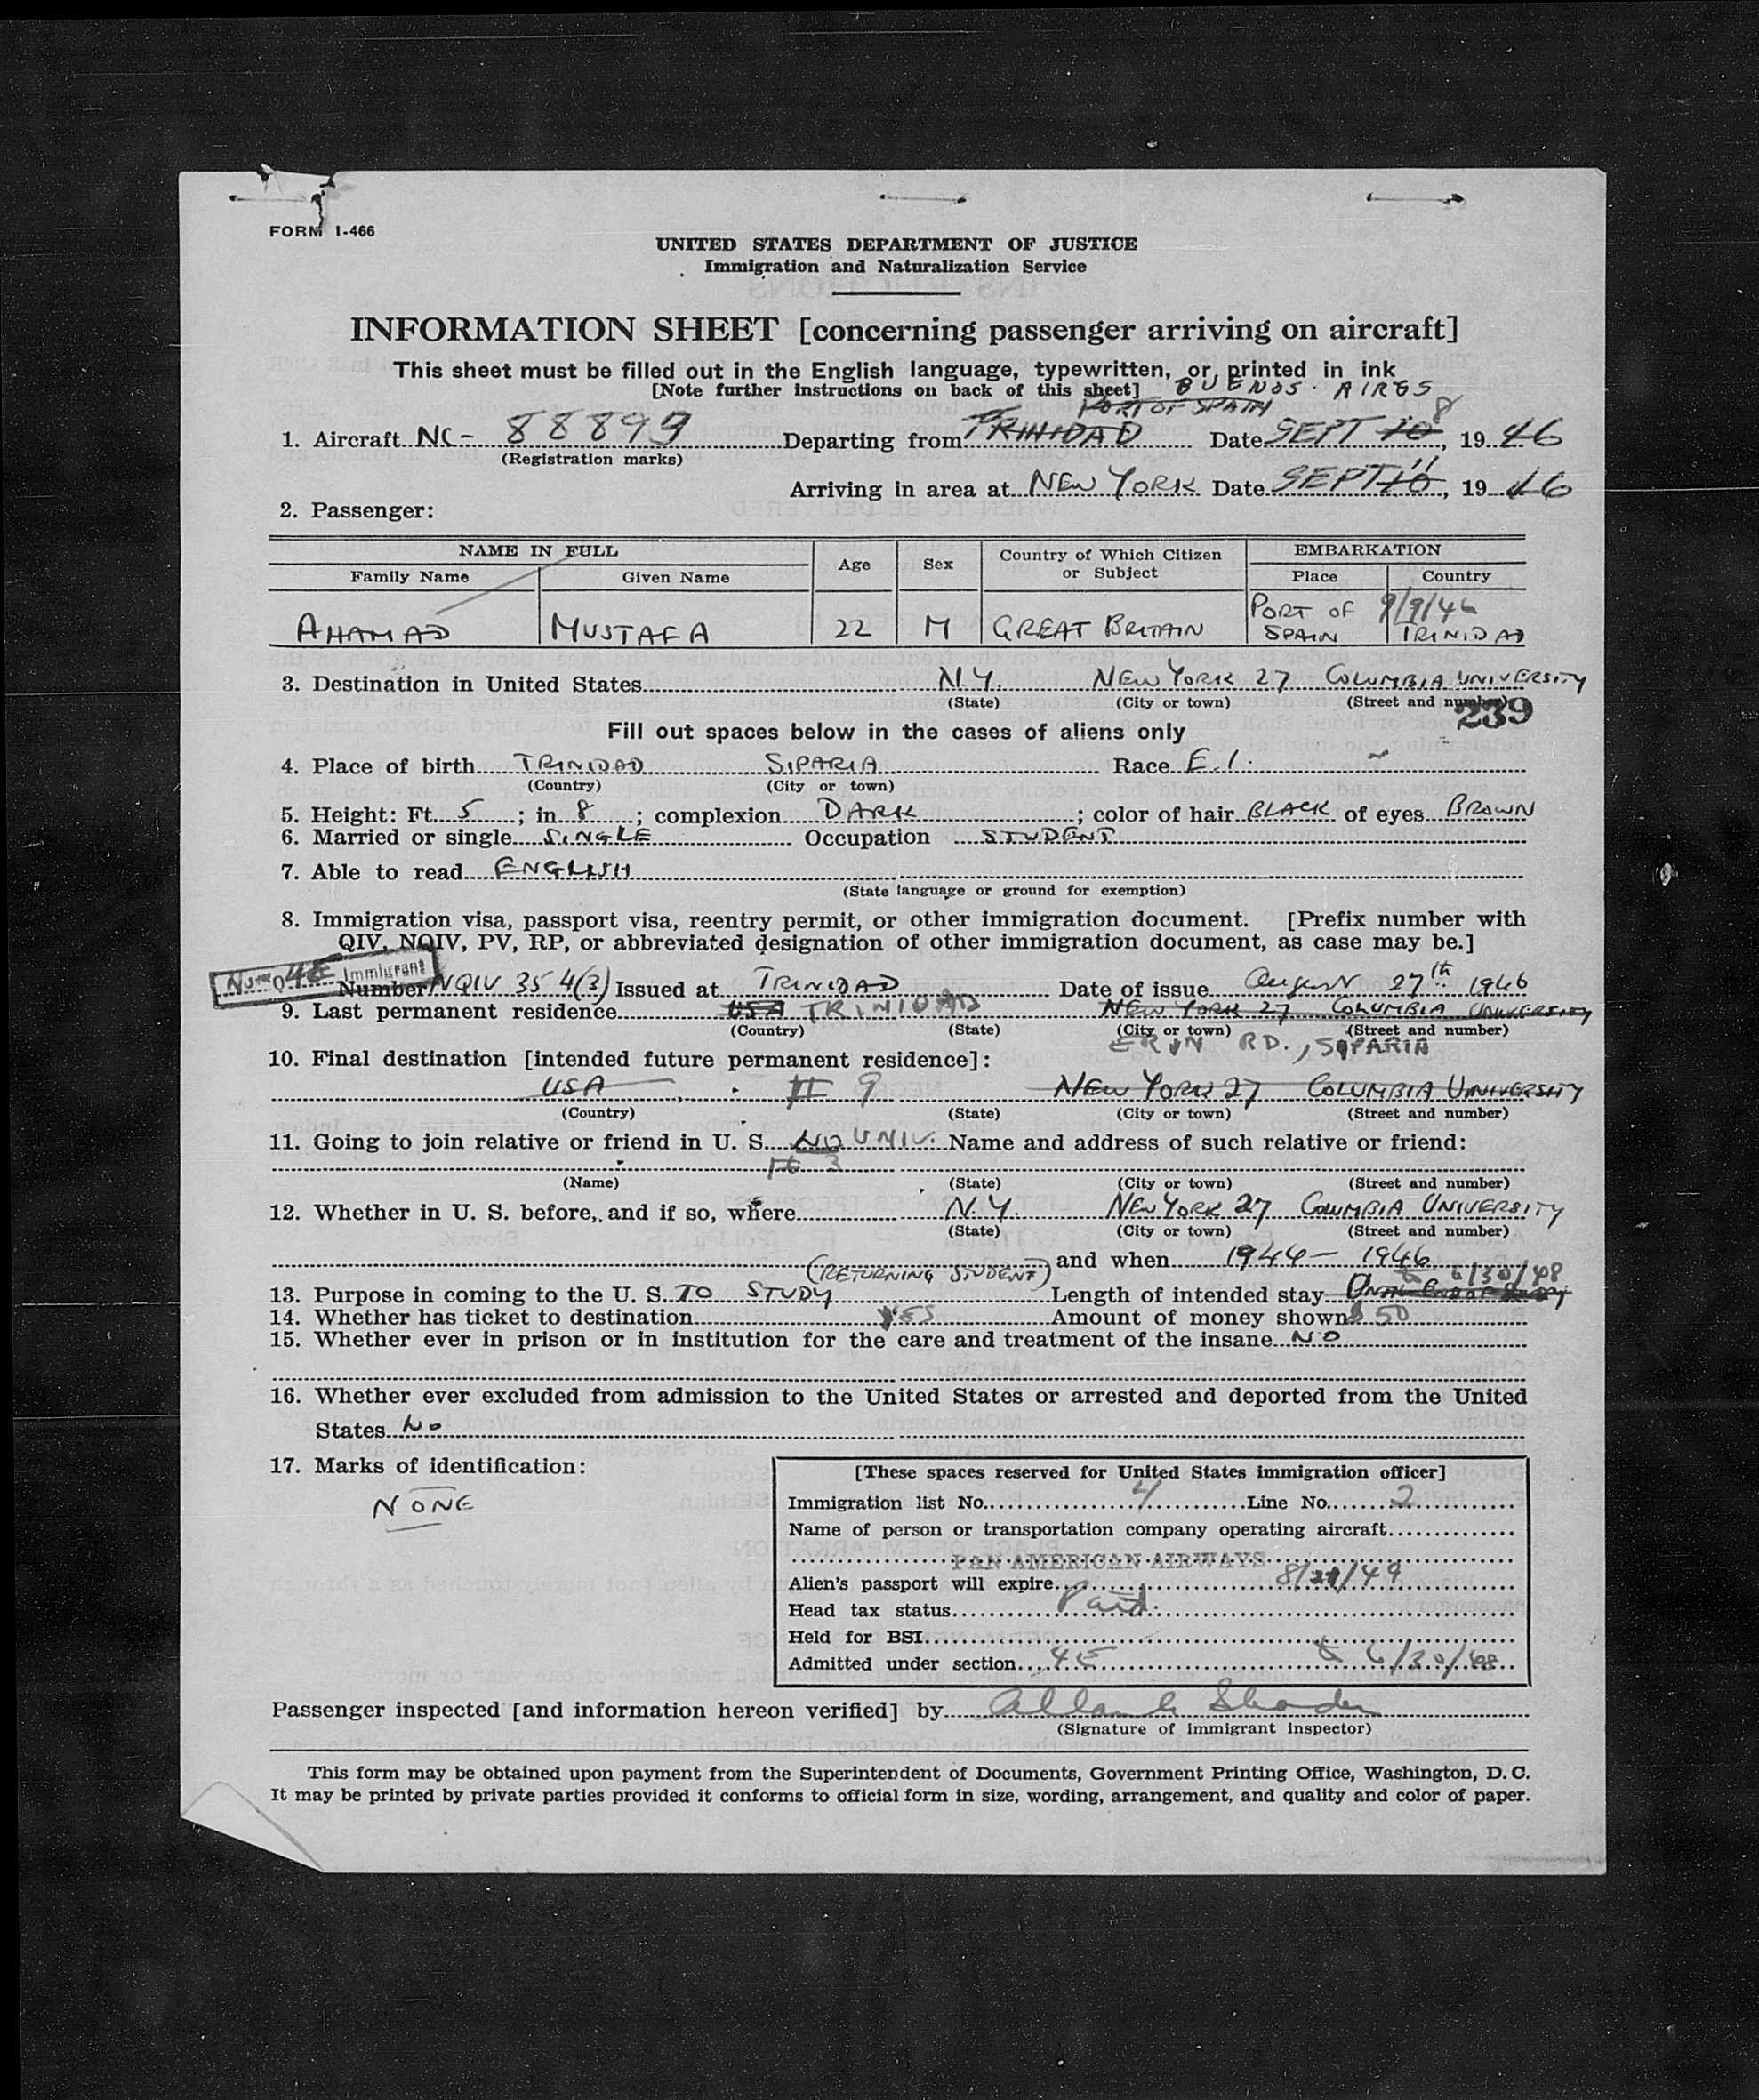 FORM I-466
UNITED STATES DEPARTMENT OF JUSTICE
Immigration and Naturalization Service
INFORMATION SHEET [concerning passenger arriving on aircraft]
This sheet must be filled out in the English language, typewritten, or printed in ink
[Note further instructions on back of this sheet] BUENOS AIRES
PORT OF SPAIN 8
1. Aircraft NC- 88899 Departing from TRINIDAD Date SEPT 10, 19 46
(Registration marks)
11
Arriving in area at NEW YORK Date SEPT 10, 19 46
2. Passenger:
NAME IN FULL Age Sex Country of Which Citizen or Subject EMBARKATION
Family Name Given Name Place Country
AHAMAD MUSTAFA 22 M GREAT BRITAIN PORT OF SPAIN 9/9/46 TRINIDAD
3. Destination in United States N.Y. NEW YORK 27 COLUMBIA UNIVERSITY
(State) (City or town) (Street and number)
239
Fill out spaces below in the cases of aliens only
4. Place of birth TRINIDAD SIPARIA Race E.I.
(Country) (City or town)
5. Height: Ft. 5; in 8; complexion DARK; color of hair BLACK of eyes BROWN
6. Married or single SINGLE Occupation STUDENT
7. Able to read ENGLISH
(State language or ground for exemption)
8. Immigration visa, passport visa, reentry permit, or other immigration document. [Prefix number with
QIV, NQIV, PV, RP, or abbreviated designation of other immigration document, as case may be.]
4E Immigrant
Number NQIV 35 4(3) Issued at TRINIDAD Date of issue August 27th 1946
9. Last permanent residence USA TRINIDAD NEW YORK 27 COLUMBIA UNIVERSITY
(Country) (State) (City or town) (Street and number)
ERIN RD., SIPARIA
10. Final destination [intended future permanent residence]:
USA II 9 NEW YORK 27 COLUMBIA UNIVERSITY
(Country) (State) (City or town) (Street and number)
11. Going to join relative or friend in U. S. NO UNIV. Name and address of such relative or friend:
(Name) (State) (City or town) (Street and number)
12. Whether in U. S. before, and if so, where N.Y. NEW YORK 27 COLUMBIA UNIVERSITY
(State) (City or town) (Street and number)
and when 1944 - 1946
(RETURNING STUDENT) 6/30/48
13. Purpose in coming to the U. S. TO STUDY Length of intended stay
14. Whether has ticket to destination YES Amount of money shown $50
15. Whether ever in prison or in institution for the care and treatment of the insane NO
16. Whether ever excluded from admission to the United States or arrested and deported from the United
States No
17. Marks of identification:
NONE
[These spaces reserved for United States immigration officer]
Immigration list No. 4 Line No. 2
Name of person or transportation company operating aircraft
PAN AMERICAN AIRWAYS
Alien's passport will expire 8/21/49
Head tax status Paid.
Held for BSI
Admitted under section 4E 6/30/48
Passenger inspected [and information hereon verified] by
(Signature of immigrant inspector)
This form may be obtained upon payment from the Superintendent of Documents, Government Printing Office, Washington, D. C.
It may be printed by private parties provided it conforms to official form in size, wording, arrangement, and quality and color of paper.